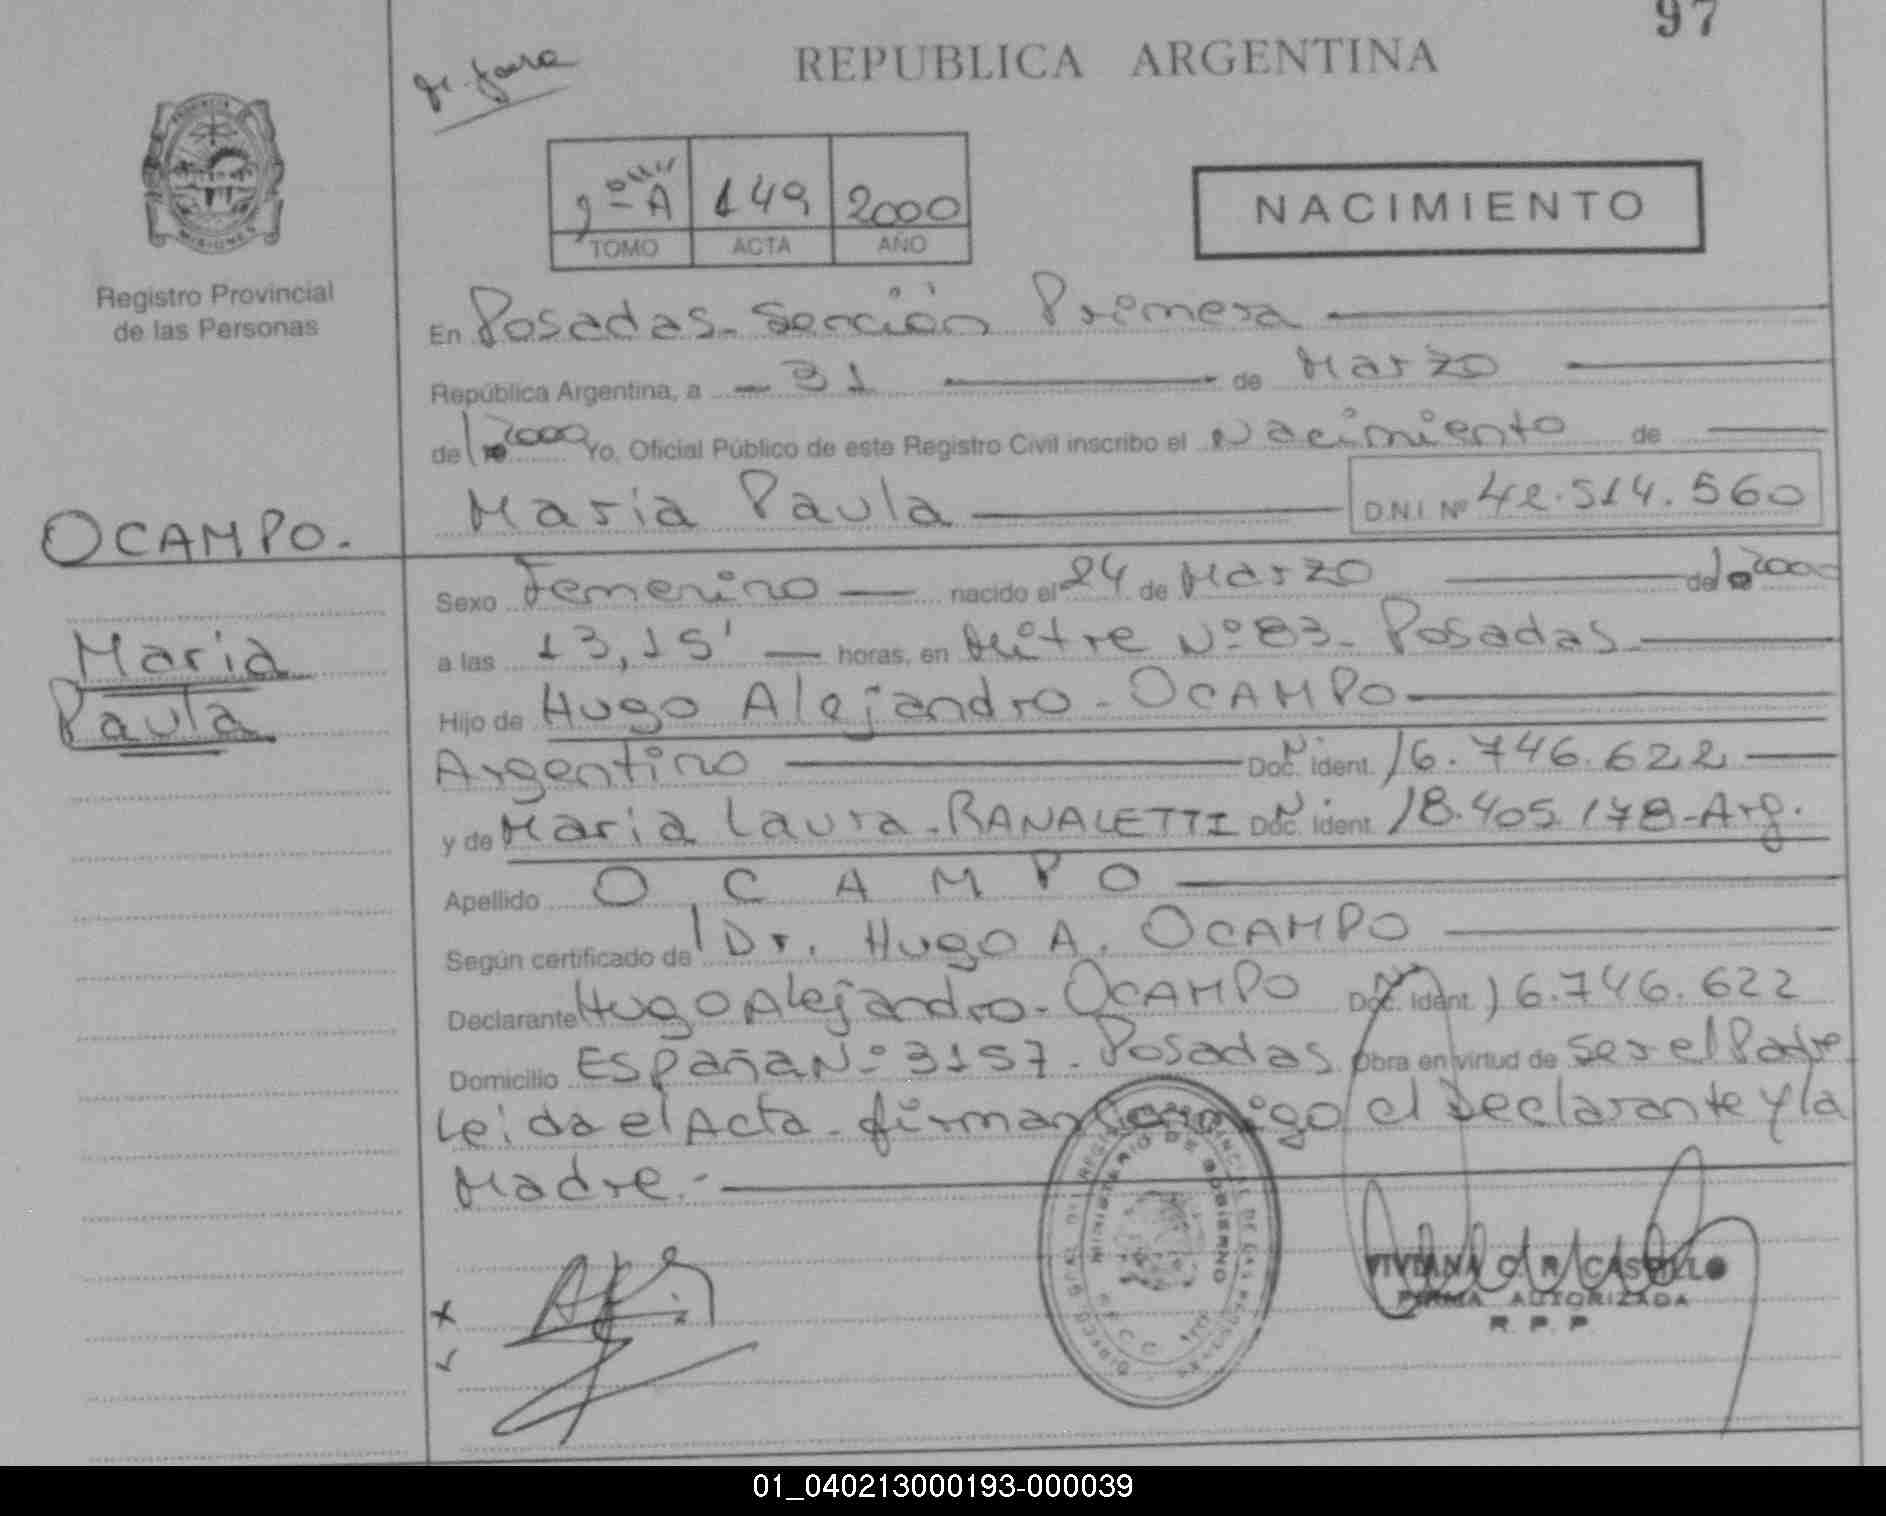 97
REPUBLICA ARGENTINA
PROVINCIA
MISIONES
Registro Provincial
de las Personas
"A" 149 2000
TOMO ACTA AÑO
NACIMIENTO
En Posadas - Sección Primera
República Argentina, a - 31 de Marzo
de 2000 Yo, Oficial Público de este Registro Civil inscribo el Nacimiento de
Maria Paula D.N.I. Nº 42.514.560
OCAMPO.
Maria
Paula
Sexo Femenino nacido el 24 de Marzo de 2000
a las 13,15' horas, en Mitre Nº 83 - Posadas
Hijo de Hugo Alejandro - OCAMPO
Argentino Doc. Ident. 16.746.622
y de Maria Laura - RANALETTI Doc. Ident. 18.405.178 - Arg.
Apellido OCAMPO
Según certificado de Dr. Hugo A. OCAMPO
Declarante Hugo Alejandro - OCAMPO Doc. Ident. 16.746.622
Domicilio España Nº 3157 - Posadas Obra en virtud de ser el Padre
Leida el Acta - firman conmigo el Declarante y la
Madre.-
MINISTERIO DE GOBIERNO
VIVIANA C. R. CASTILLO
FIRMA AUTORIZADA
R. P. P.
01_040213000193-000039